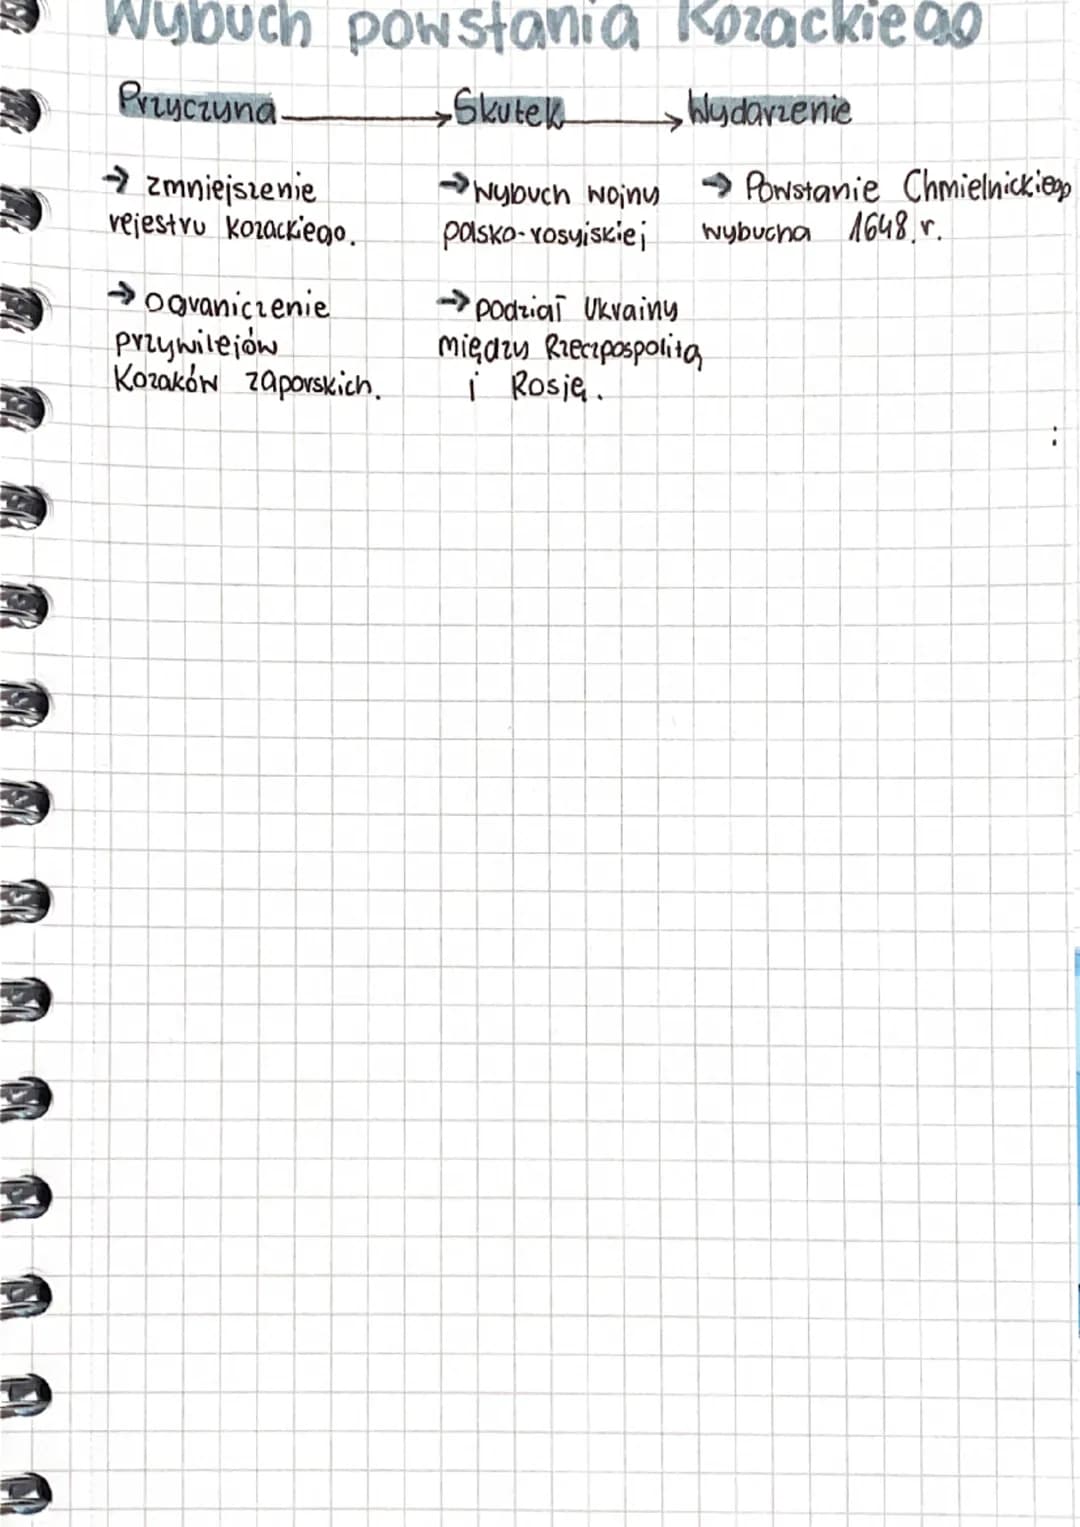 Wybuch powstania Kozackiego
Przyczyna → Skutek → Wydarzenie
→ zmniejszenie
rejestru kozackiego.
→ ograniczenie
przywilejów
Kozaków zaporskich.
→ wybuch wojny
polsko-rosyjskiej
→ podział Ukrainy
między Rzeczpospolitą
i Rosję.
→ Powstanie Chmielnickiego
wybucha 1648.r.